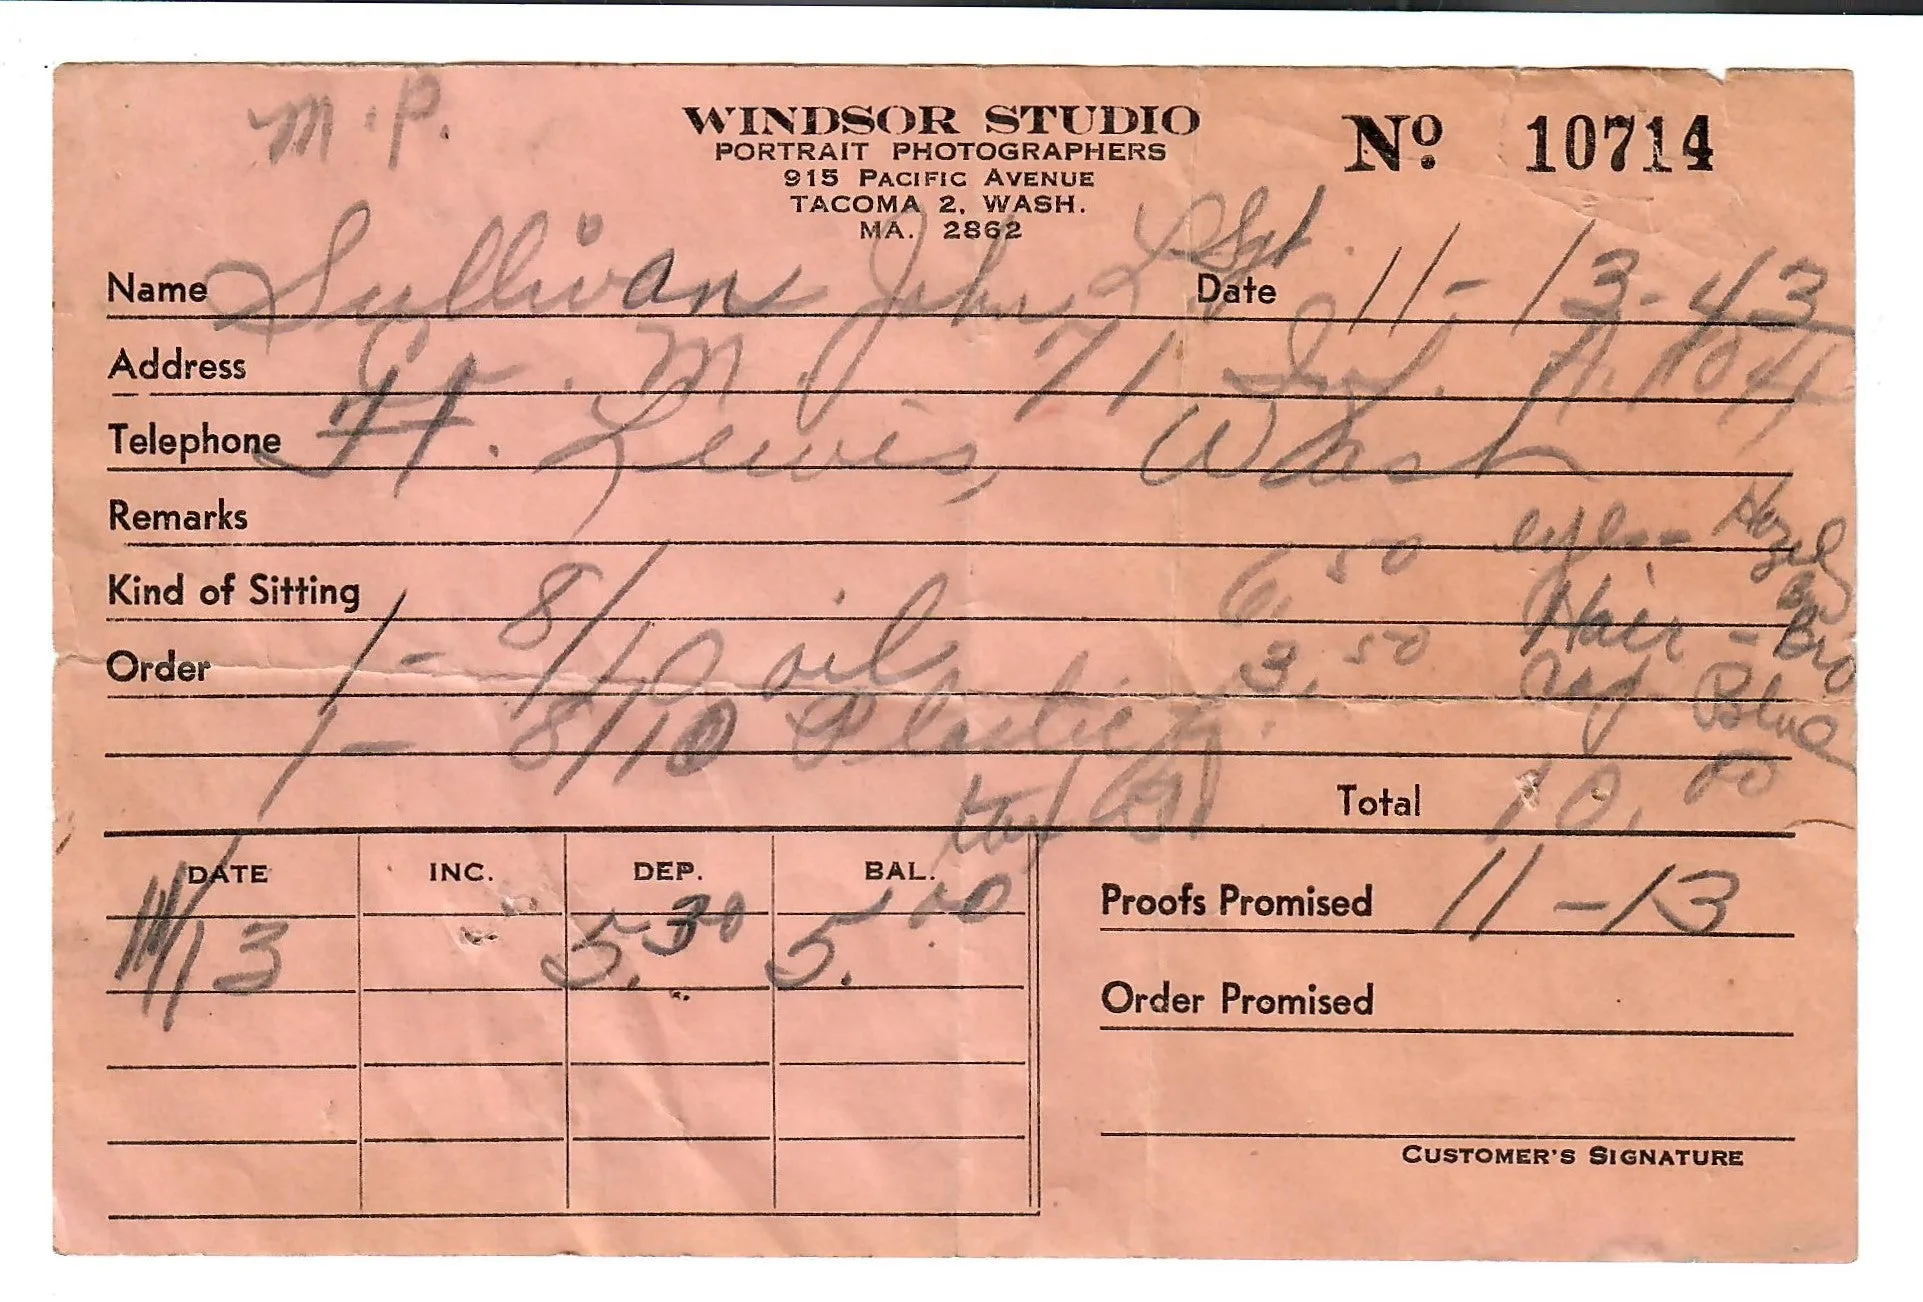 M.P.
WINDSOR STUDIO
PORTRAIT PHOTOGRAPHERS
915 PACIFIC AVENUE
TACOMA 2, WASH.
MA. 2862
Nº 10714
Name Sullivan John L Sgt. Date 11-13-43
Address Co. M. 71 Inf. A.P.O 44
Telephone Ft. Lewis, Wash
Remarks
Hazel
Kind of Sitting
Order 1- 8/10 oil 6.50 Hair - Bro
1- 8/10 Plastic 3.50 Blue
tax Total 10.00
DATE INC. DEP. BAL.
11/13 5.30 5.00
Proofs Promised 11-13
Order Promised
CUSTOMER'S SIGNATURE